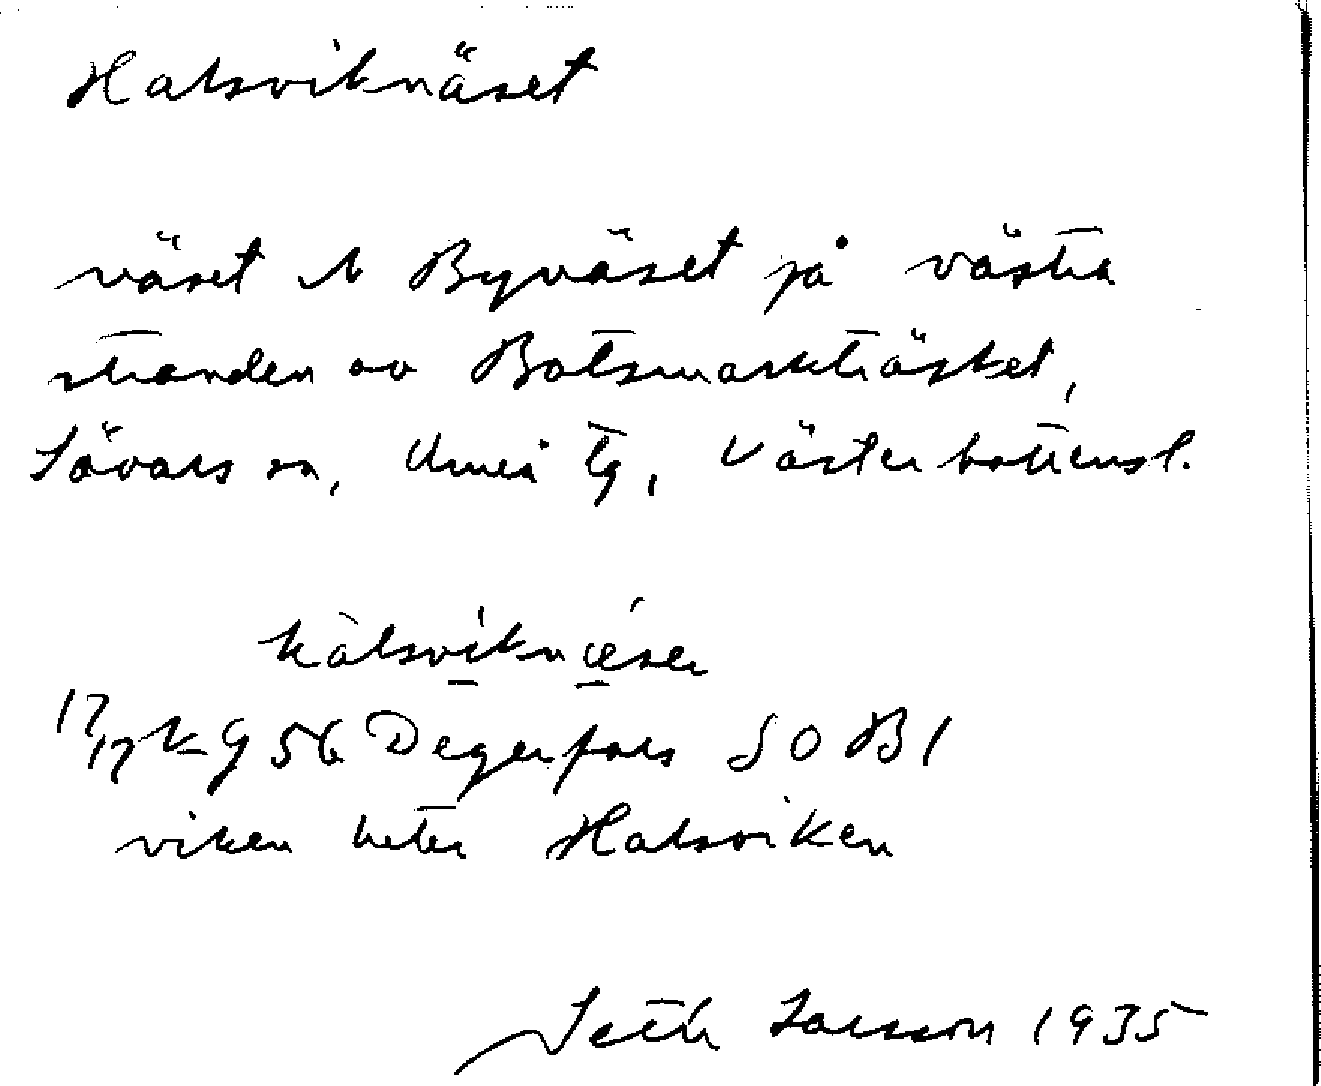 Halsviknäset
näset N Bynäset på västra
stranden av Botsmarkträsket,
Sävars sn, Umeå tg, Västerbottensl.
hàlsviknǽsen
17/12 K G 56 Degerfors SO B1
viken heter Halsviken
Seth Larsson 1935